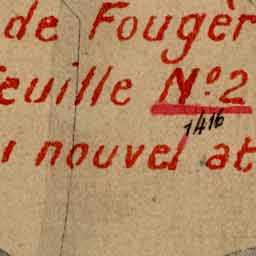 de Fougèr
feuille N.º 2
1416
u nouvel at